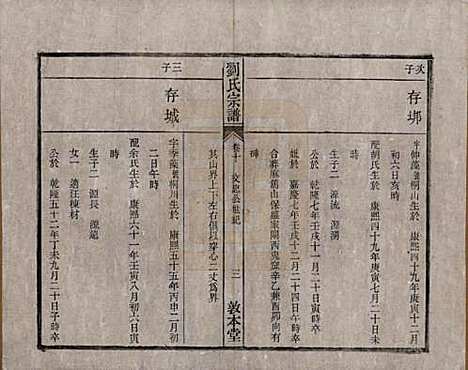 次子
存垹
字仲藻號桐山生於 康熙四十九年庚寅十二月
初六日亥時
配胡氏生於 康熙四十九年庚寅七月二十日未
時
生子二 源流 源瀾
公於 乾隆七年壬戌十一月二十日子時卒
妣於 嘉慶七年壬戌十二月二十四日午時卒
合葬麻鞍山保羅家閣西兜窊辛乙兼酉卯向有
碑
其山界上下左右俱以穿心二丈為界
劉氏宗譜
卷十一 文忠公世紀
三
敦本堂
三子
存城
字季藻號桐川生於 康熙五十五年丙申二月初
二日午時
配余氏生於 康熙六十一年壬寅八月初六日寅
時
生子二 源長 源遠
女一 適汪棟材
公於 乾隆五十二年丁未九月二十日子時卒